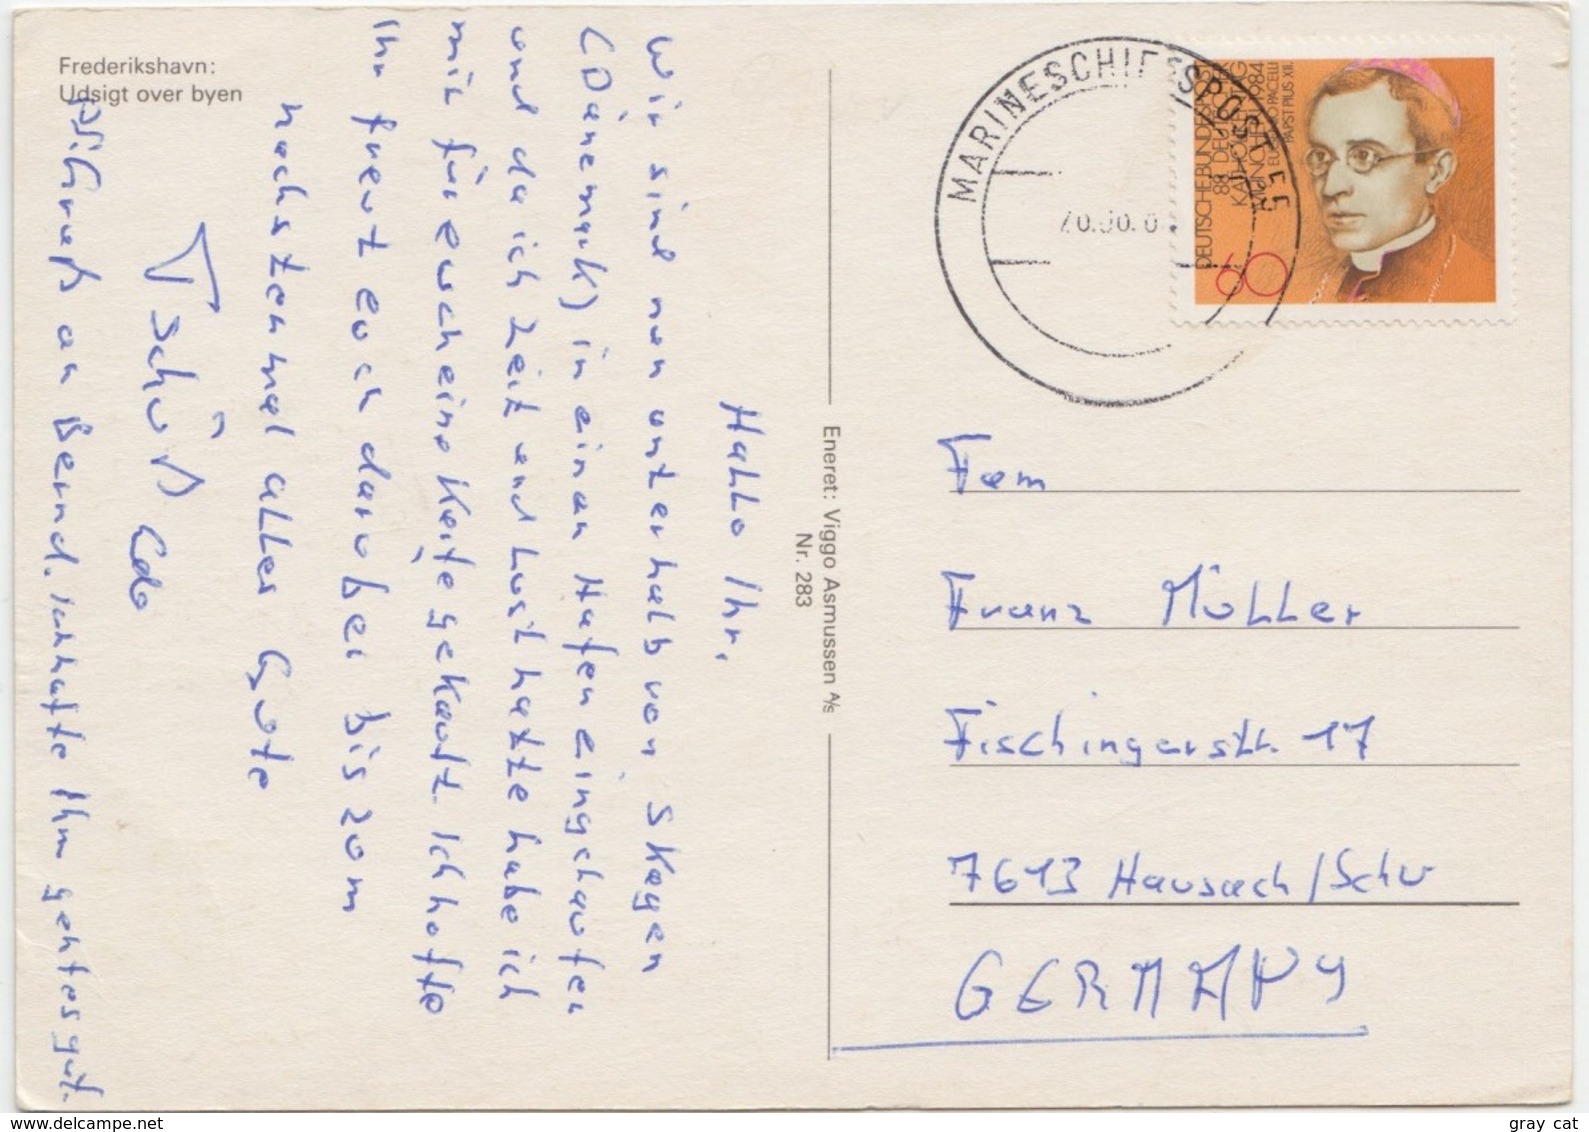 Frederikshavn:
Udsigt over byen
Hallo Ihr,
Wir sind nun unterhalb von Skagen
(Dänemark) in einen Hafen eingelaufen
und da ich Zeit und Lust hatte habe ich
mir für euch eine Karte gekauft. Ich hoffe
Ihr freut euch darüber bis zum
nächsten mal alles Gute
Tschüß
PS: Gruß an Bernd. Ich hoffe Ihm geht es gut.
Eneret: Viggo Asmussen A/S
Nr. 283
MARINESCHIFFSPOST
DEUTSCHE BUNDESPOST
88. DEUTSCHER
KATHOLIKENTAG
MÜNCHEN 1984
EUGENIO PACELLI
PAPST PIUS XII.
60
Fam
Franz Müller
Fischingerstr. 17
7613 Hausach/Schw
GERMANY
www.delcampe.net
gray cat